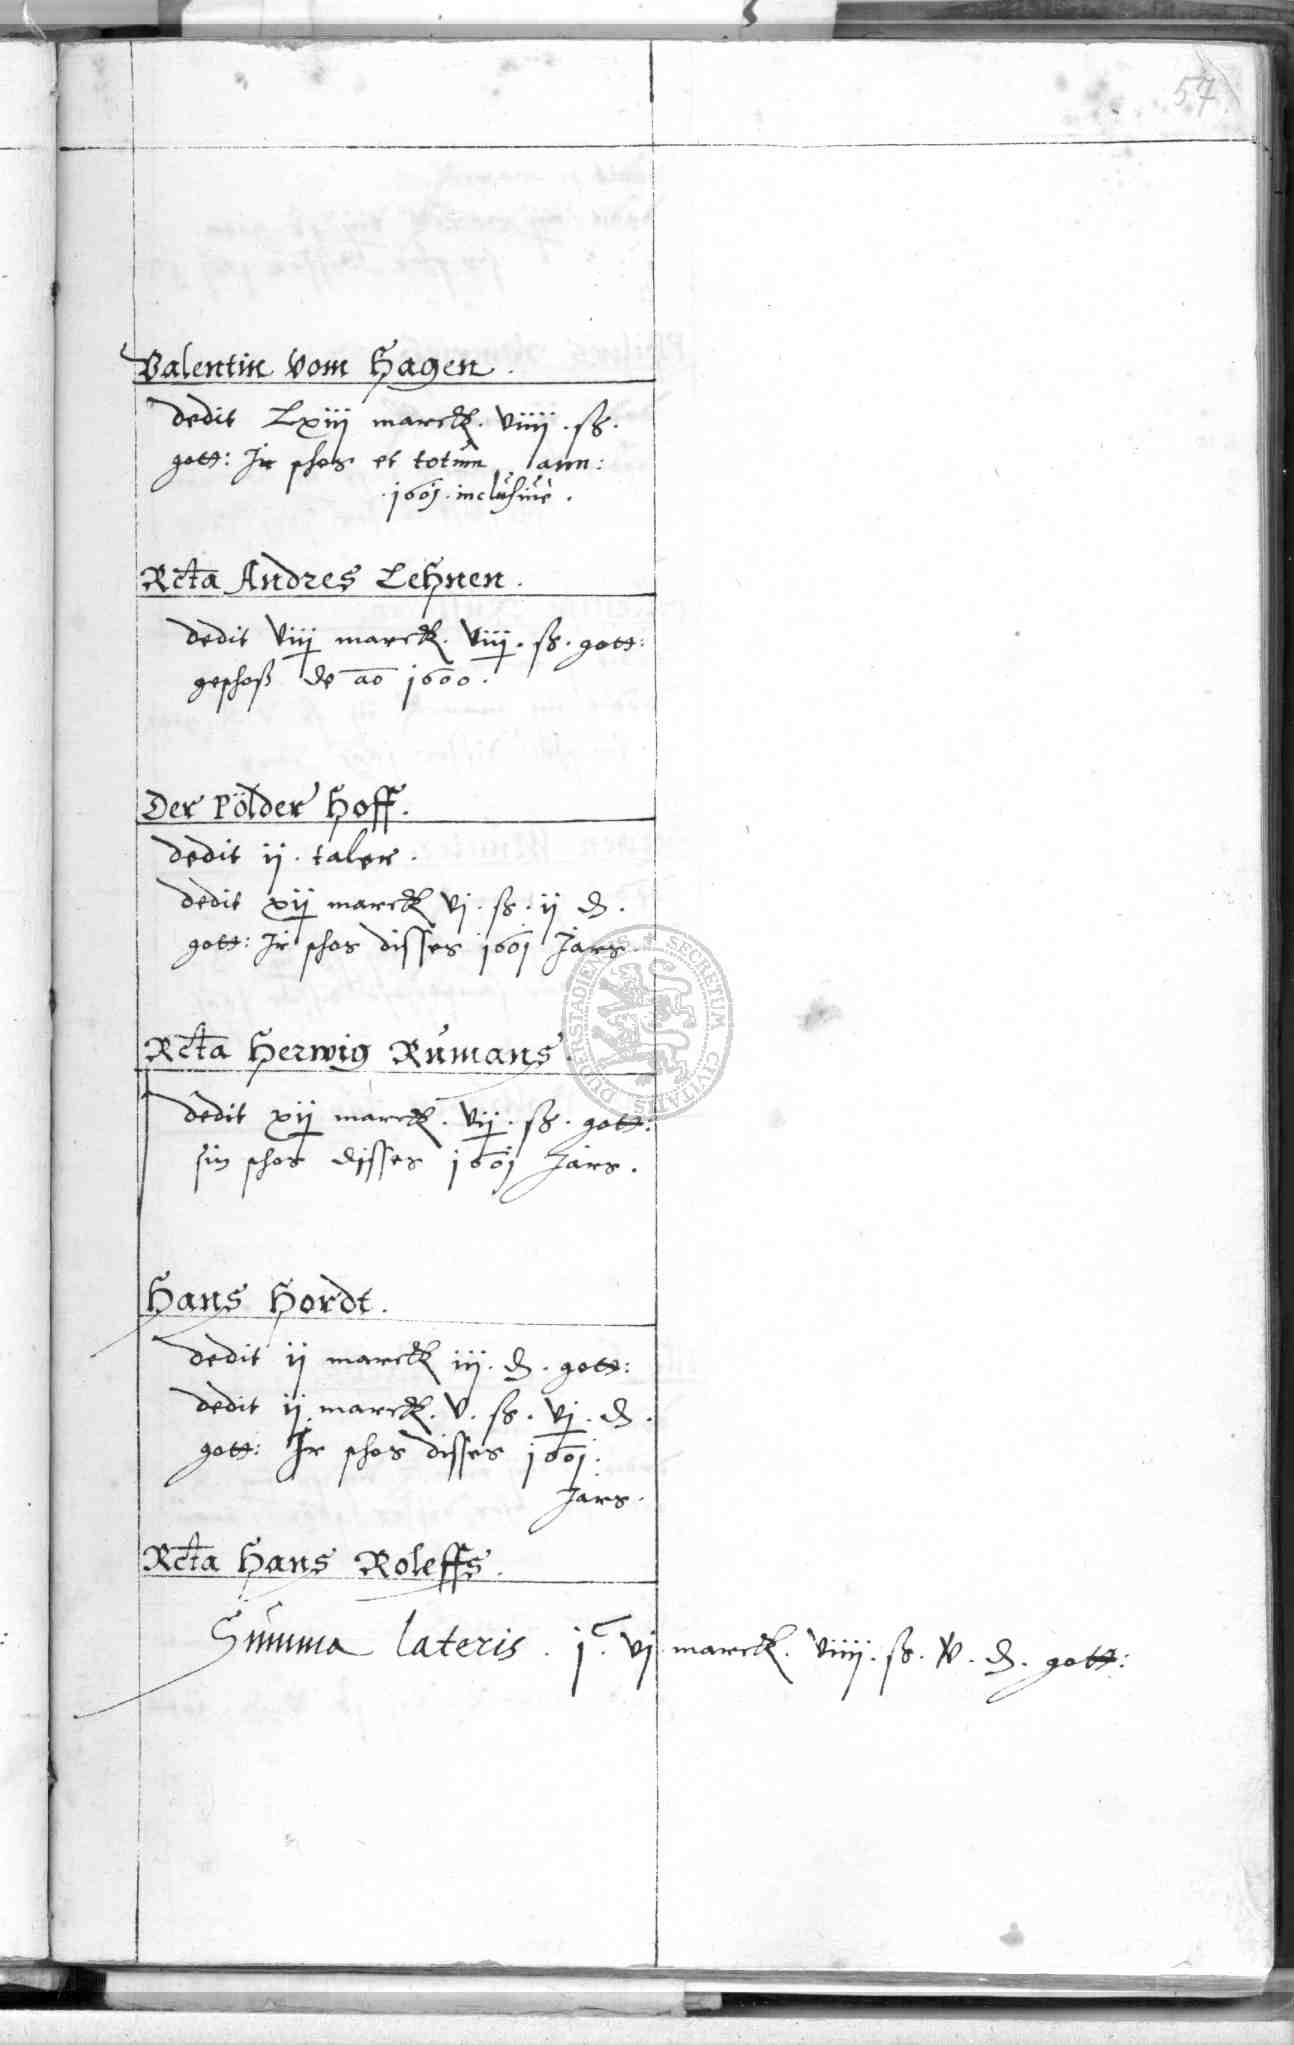 57
Valentin vom Hagen.
dedit Lxiij marck. viiij. ß.
gott: Ir schos et totum ann:
.1601. inclusive.
Rcta Andres Lehnen.
dedit viij marck. viij. ß. gott:
geschoß de ao 1600.
Der Pölder Hoff.
dedit ij. taler.
dedit xij marck vj. ß. ij ₰.
gott: Ir schos disses 1601 Jars.
Rcta Herwig Rumans.
dedit xij marck. vij. ß. gott:
sin schos disses 1601 Jars.
Hans Hordt.
dedit ij marck iij. ₰. gott:
dedit ij. marck. v. ß. vj. ₰.
gott: Ir schos disses 1601.
Jars.
Rcta Hans Roleffs.
Summa lateris. jc. vj marck. viiij. ß. v. ₰. gott:
SECRETUM CIVITATIS DUDERSTADIENSIS